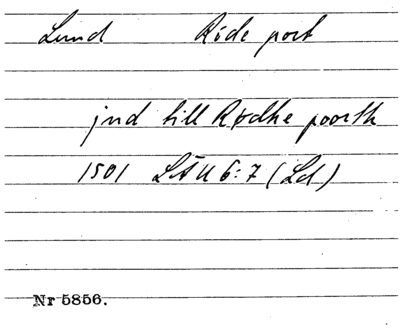 Lund Röde port
jnd till Rødhe poorth
1501 LÄU 6:7 (Ld)
Nr 5856.